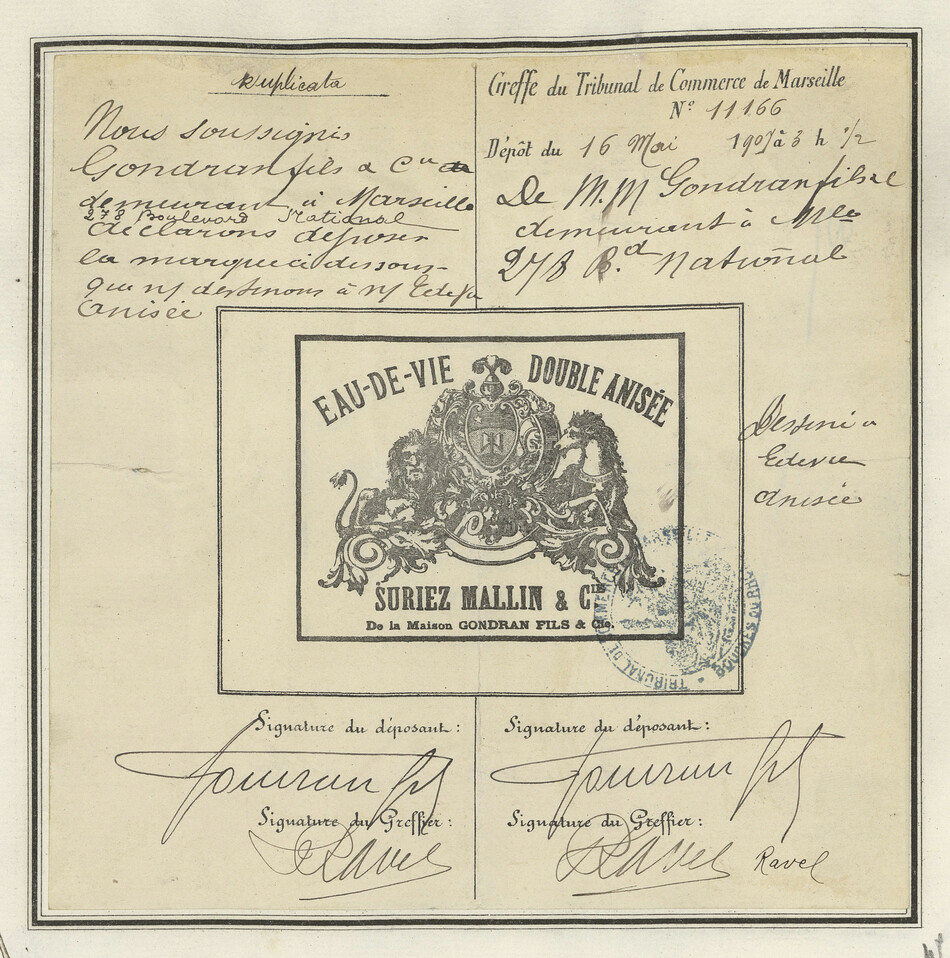 Duplicata
Nous soussignés
Gondran fils & Cie
demeurant à Marseille
278 Boulevard National
déclarons déposer
la marque ci dessous
que n/ destinons à n/ Ede Vie
Anisée
Greffe du Tribunal de Commerce de Marseille
N° 11166
Dépôt du 16 Mai 1907 à 3 h 1/2
De M.M Gondran fils &
demeurant à Mlle
278 B.d National
EAU-DE-VIE DOUBLE ANISÉE
SURIEZ MALLIN & CIE
De la Maison GONDRAN FILS & Cie.
à
Edevie
Anisée
TRIBUNAL DE COMMERCE MARSEILLE
BOUCHES DU RHÔNE
Signature du déposant :
Signature du déposant :
Gondran fils
Gondran fils
Signature du Greffier :
Signature du Greffier :
Ravel
Ravel
Ravel